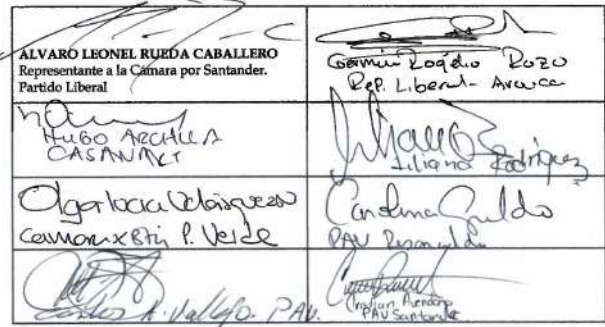 ALVARO LEONEL RUEDA CABALLERO
Representante a la Cámara por Santander.
Partido Liberal
Germán Rogelio Rozo
Rep. Liberal - Arauca
HUGO ARCHILA
CASANARE
Liliana Rodríguez
Olga Lucía Velásquez
P. Verde
Carolina Giraldo
PAV Risaralda
A. Vallejo. PAV.
Cristian Avendaño
PAV Santander